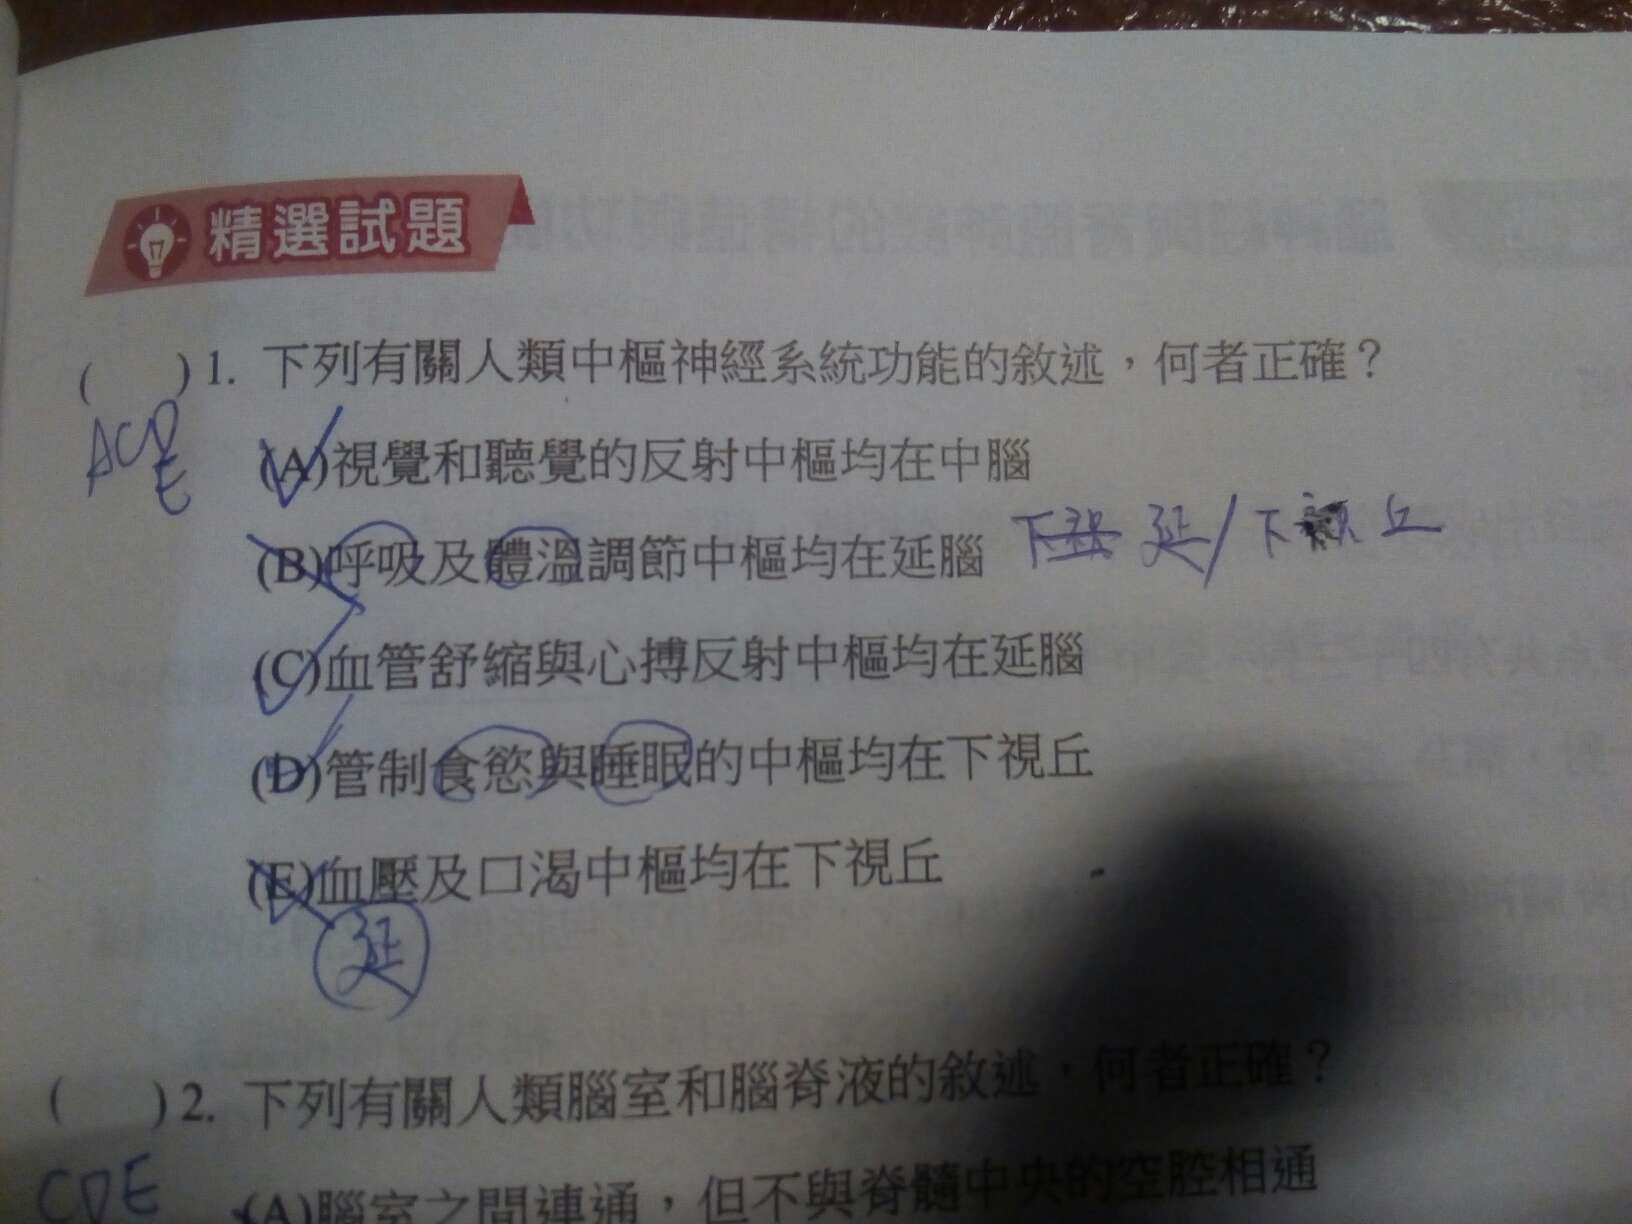 精選試題
( )1. 下列有關人類中樞神經系統功能的敘述，何者正確？
ACD
E
(A)視覺和聽覺的反射中樞均在中腦
(B)呼吸及體溫調節中樞均在延腦 延/下視丘
(C)血管舒縮與心搏反射中樞均在延腦
(D)管制食慾與睡眠的中樞均在下視丘
(E)血壓及口渴中樞均在下視丘
延
( )2. 下列有關人類腦室和腦脊液的敘述，何者正確？
CDE
(A)腦室之間連通，但不與脊髓中央的空腔相通